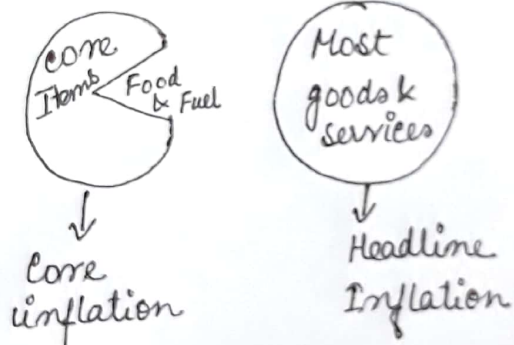 Core
Items
Food
& Fuel
Core
inflation
Most
goods &
services
Headline
Inflation